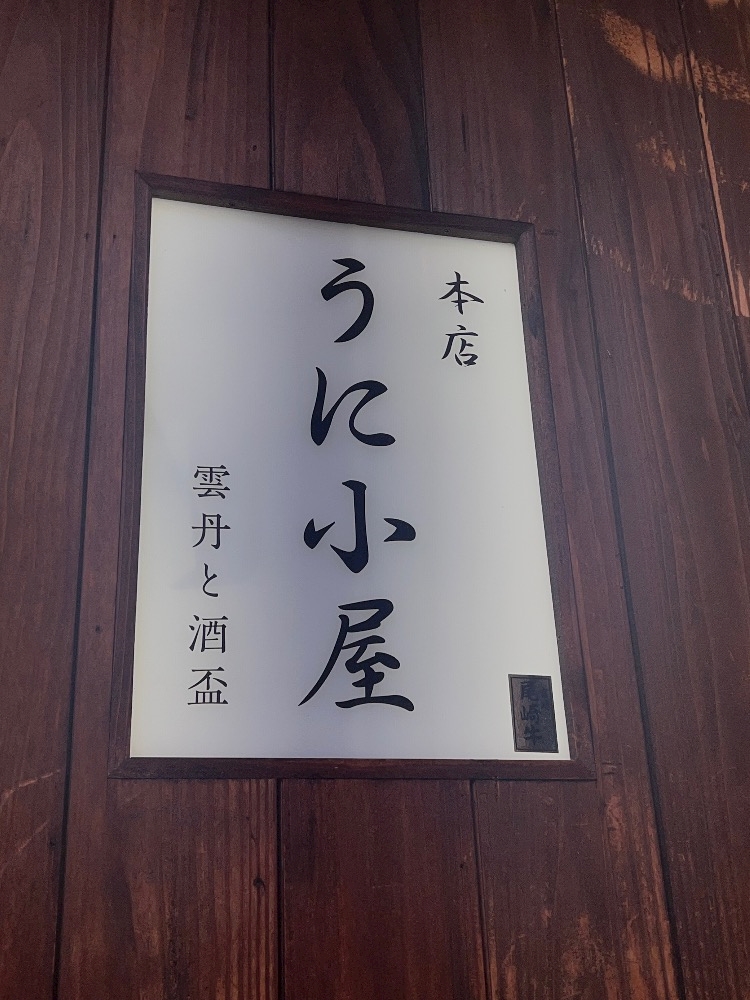 本店
うに小屋
雲丹と酒盃
尾崎牛